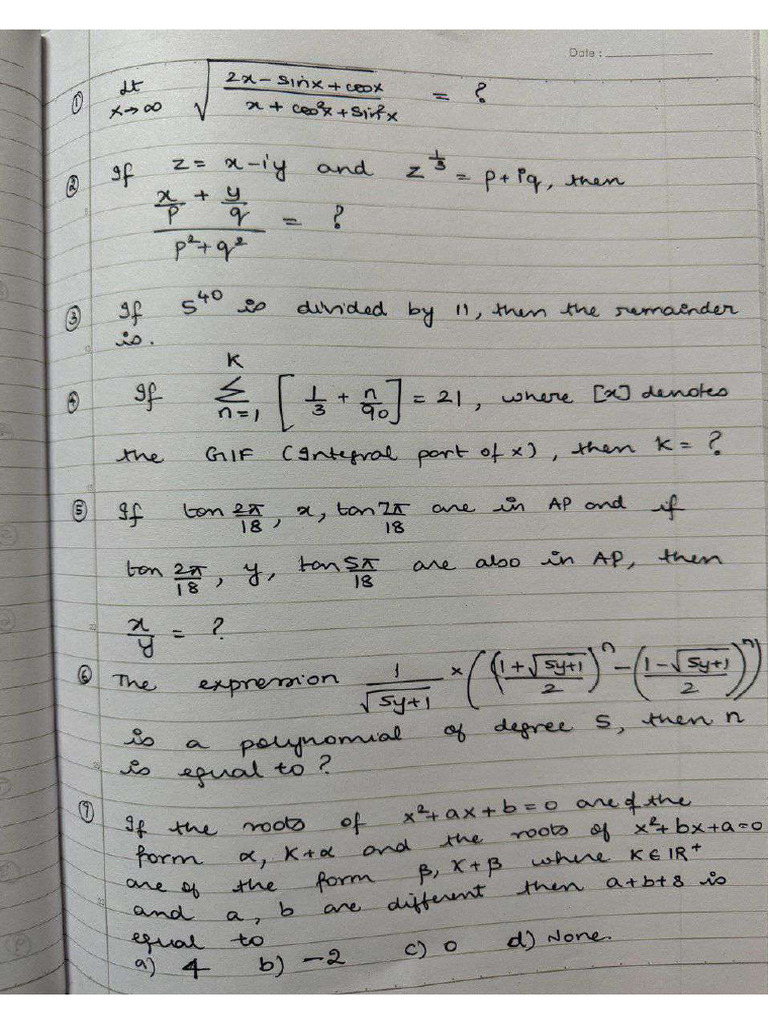 Date :
① lt x→∞ √((2x - sinx + cosx)/(x + cos²x + sin²x)) = ?
② If z = x - iy and z^(1/3) = p + iq, then
(x/p + y/q)/(p² + q²) = ?
③ If 5⁴⁰ is divided by 11, then the remainder
is.
④ If Σ_{n=1}^{K} [1/3 + n/90] = 21, where [x] denotes
the GIF (Integral part of x), then K = ?
⑤ If tan 2π/18, x, tan 7π/18 are in AP and if
tan 2π/18, y, tan 5π/18 are also in AP, then
x/y = ?
⑥ The expression 1/√(5y+1) × (((1+√(5y+1))/2)^n - ((1-√(5y+1))/2)^n)
is a polynomial of degree 5, then n
is equal to ?
⑦ If the roots of x² + ax + b = 0 are of the
form α, K+α and the roots of x² + bx + a = 0
are of the form β, K+β where K ∈ IR⁺
and a, b are different then a+b+8 is
equal to
a) 4 b) -2 c) 0 d) None.